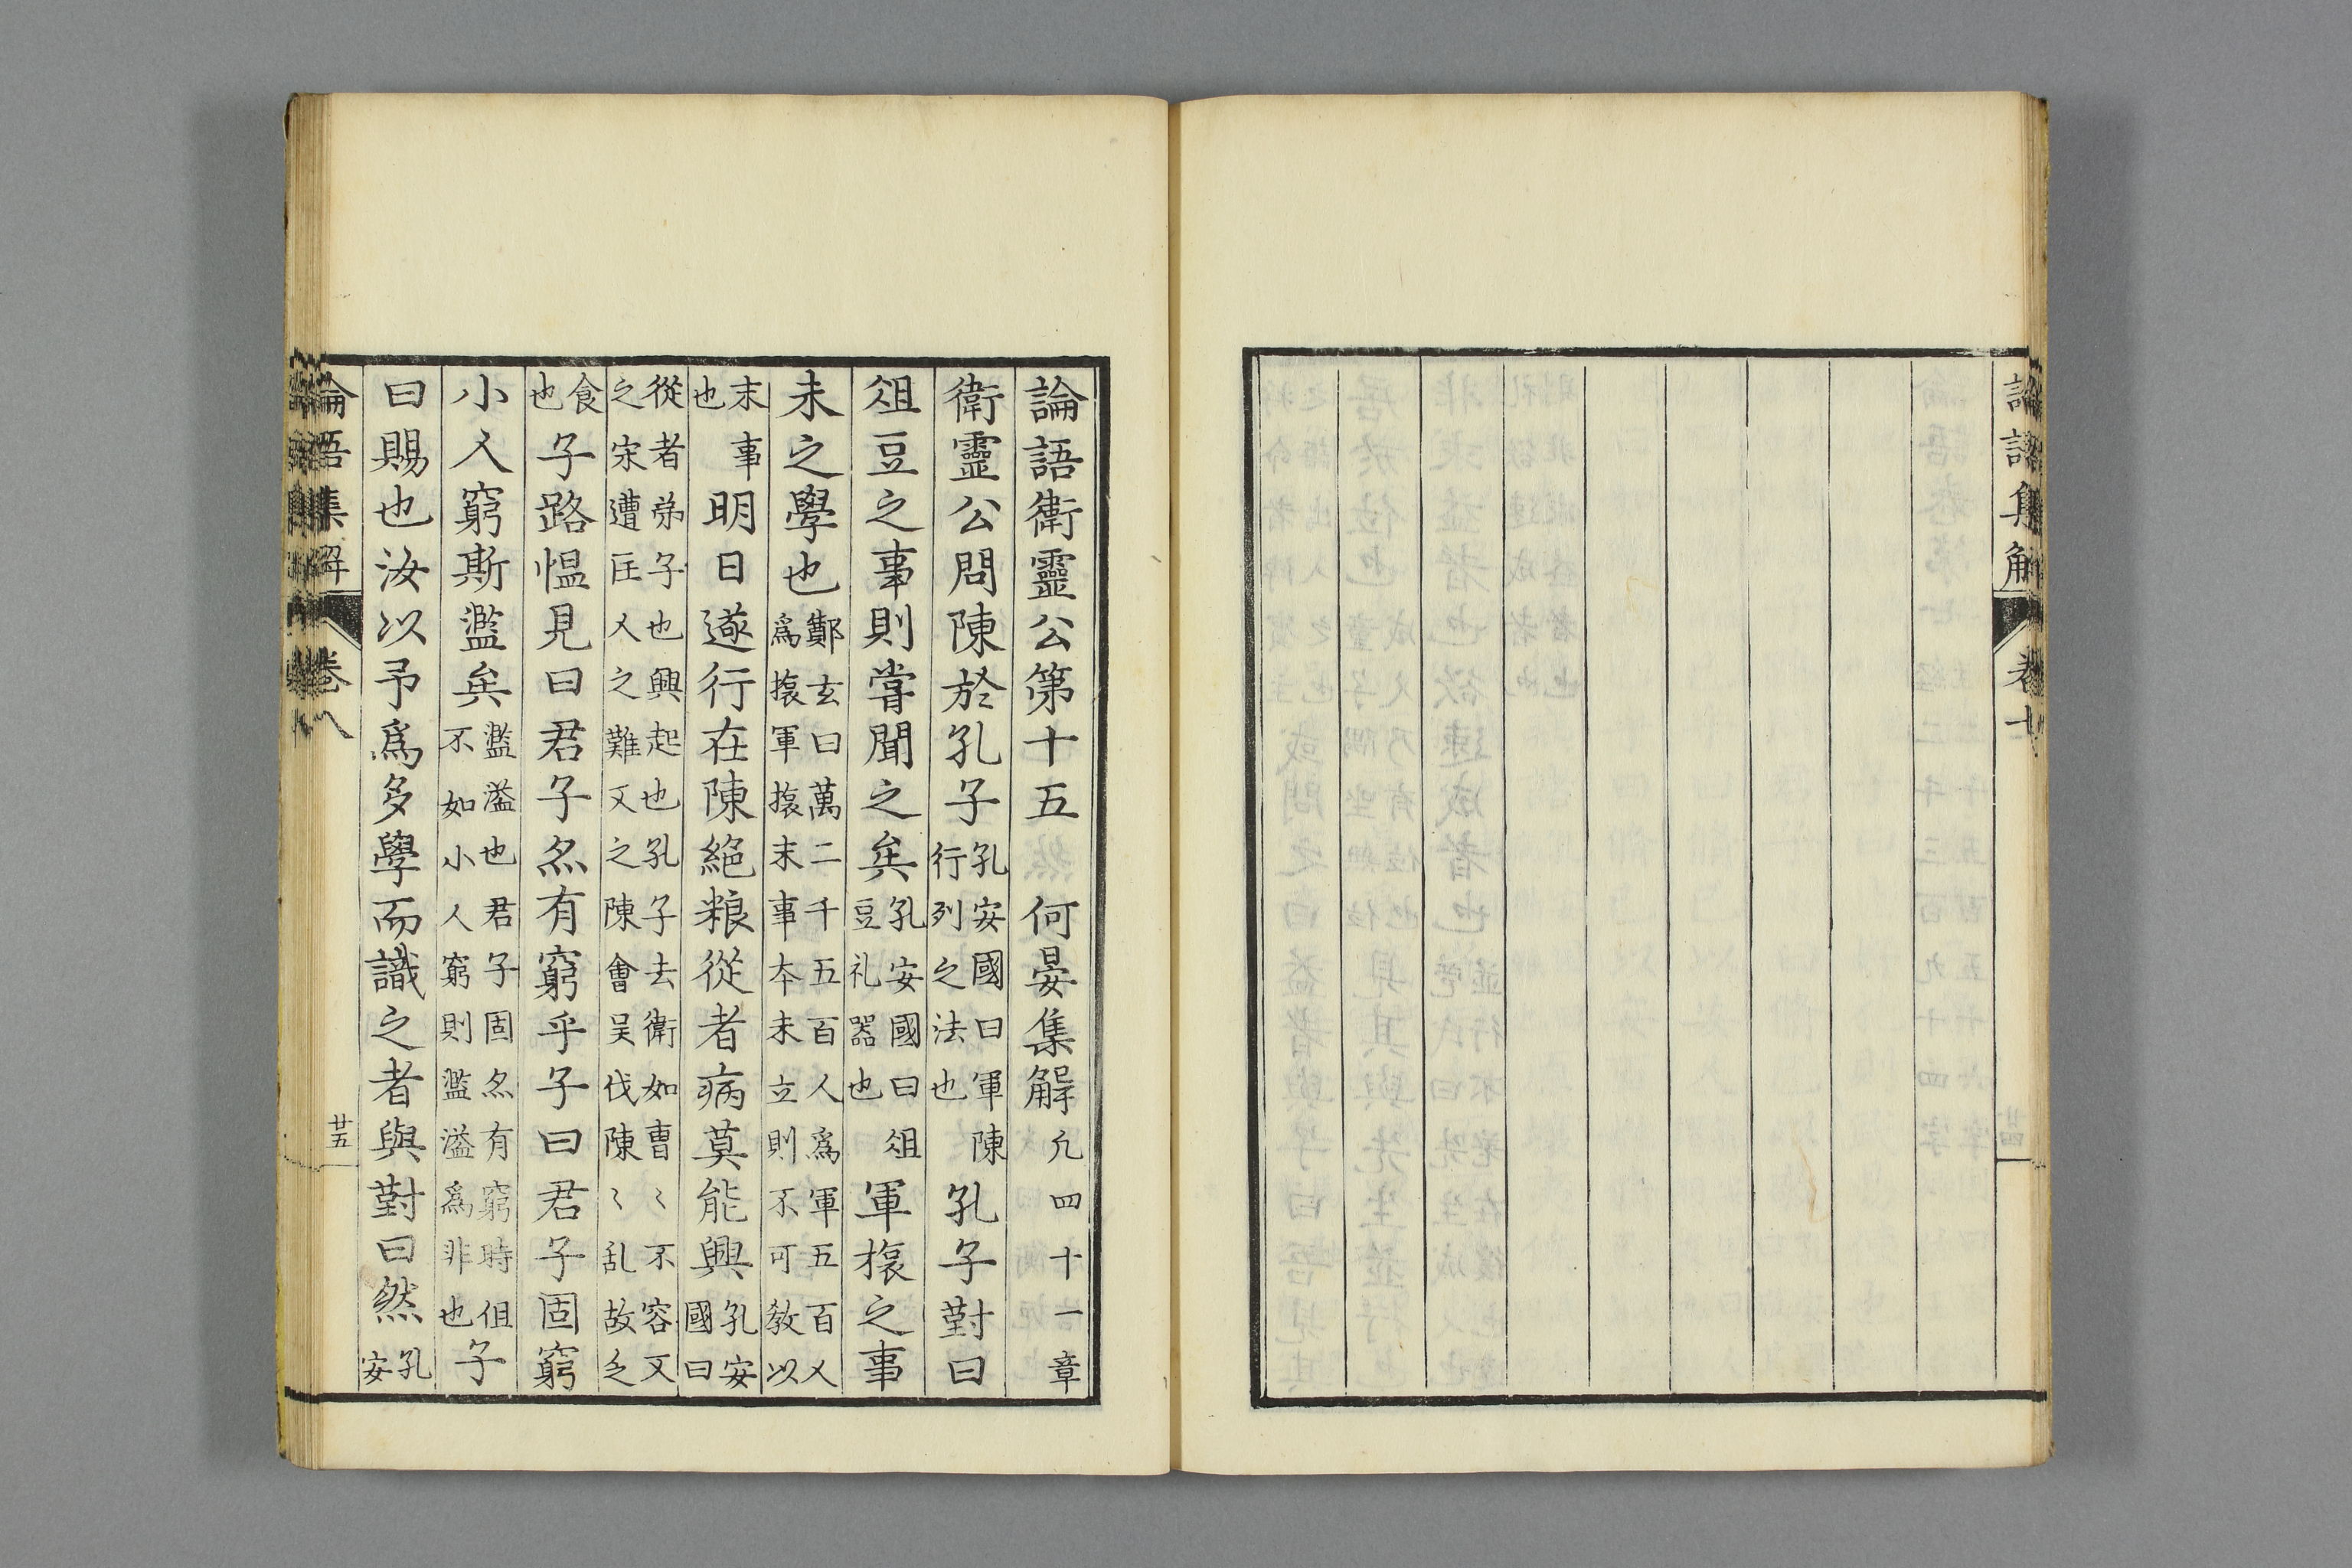 論語衛靈公第十五　何晏集解凢四十一章
衛靈公問陳於孔子孔安國曰軍陳行列之法也孔子對曰
俎豆之事則甞聞之矣孔安國曰俎豆礼器也軍旅之事
未之學也鄭玄曰萬二千五百人爲軍五百人爲旅軍旅末事本未立則不可教以
末事也明日遂行在陳絕粮從者病莫能興孔安國曰
從者弟子也興起也孔子去衛如曹〻不容又之宋遭匡人之難又之陳會吴伐陳〻乱故乏
食也子路愠見曰君子亦有窮乎子曰君子固窮
小人窮斯濫矣濫溢也君子固亦有窮時但不如小人窮則濫溢爲非也子
曰賜也汝以予爲多學而識之者與對曰然孔安
論語集解
卷八
廿五
論語集解
卷七